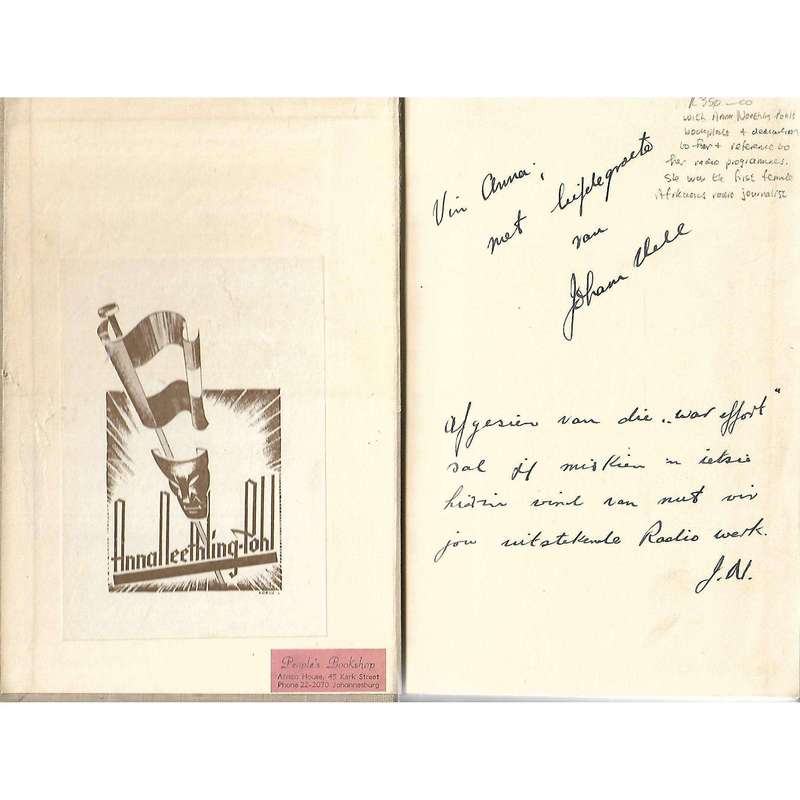 Anna Neethling-Pohl
People's Bookshop
Africa House, 45 Kerk Street
Phone 22-2070 Johannesburg
R350-00
with Anna Neethling Pohl's
bookplate + dedication
to her + reference to
her radio programmes.
She was the first female
Afrikaens radio journalist
Vir Anna;
met liefdegroete
van
Johann
Afgesien van die „war effort"
sal jy miskien 'n ietsie
hierin vind van nut vir
jou uitstekende Radio werk.
J.N.